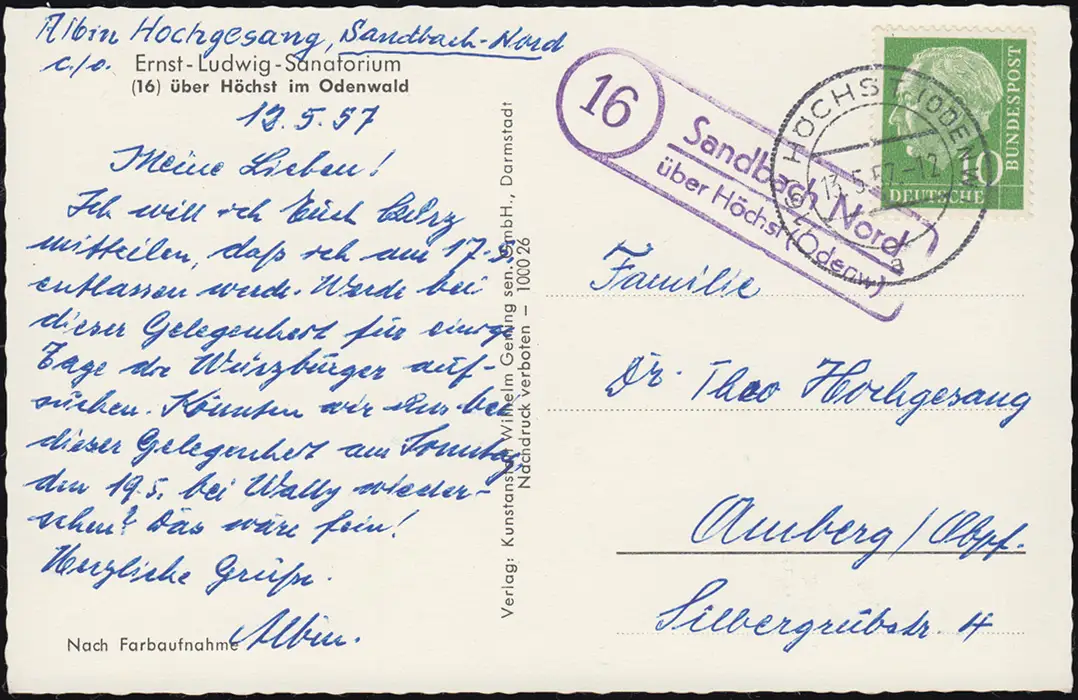 Albin Hochgesang, Sandbach-Nord
c/o. Ernst-Ludwig-Sanatorium
(16) über Höchst im Odenwald
12.5.57
Meine Lieben!
Ich will ich Euch kurz
mitteilen, daß ich am 17.5.
entlassen werde. Werde bei
dieser Gelegenheit für einige
Tage die Würzburger auf-
suchen. Könnten wir uns bei
dieser Gelegenheit am Sonntag,
den 19.5. bei Wally wieder-
sehen? Das wäre fein!
Herzliche Grüße.
Albin.
Nach Farbaufnahme
Verlag: Kunstanstalt Wilhelm Gerling sen. GmbH., Darmstadt
Nachdruck verboten – 1000 26
16
Sandbach Nord
über Höchst (Odenw)
HÖCHST (ODENW)
13.5.57-12
a
10
DEUTSCHE
BUNDESPOST
Familie
Dr. Theo Hochgesang
Amberg/Obpf.
Silbergrubstr. 4